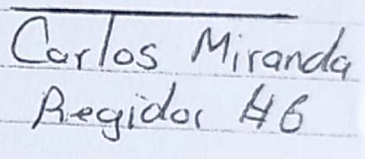 Carlos Miranda
Regidor #6